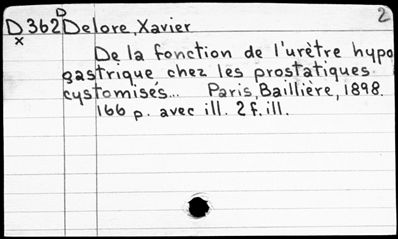 D 2
D362 Delore, Xavier
x
De la fonction de l'urètre hypo
gastrique chez les prostatiques
cystomisés... Paris, Baillière, 1898.
166 p. avec ill. 2 f. ill.